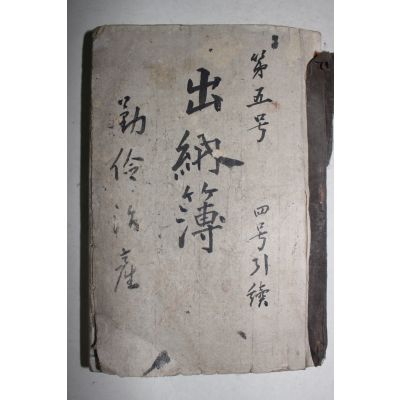 第五号 四号引續
出納簿
勤儉治産